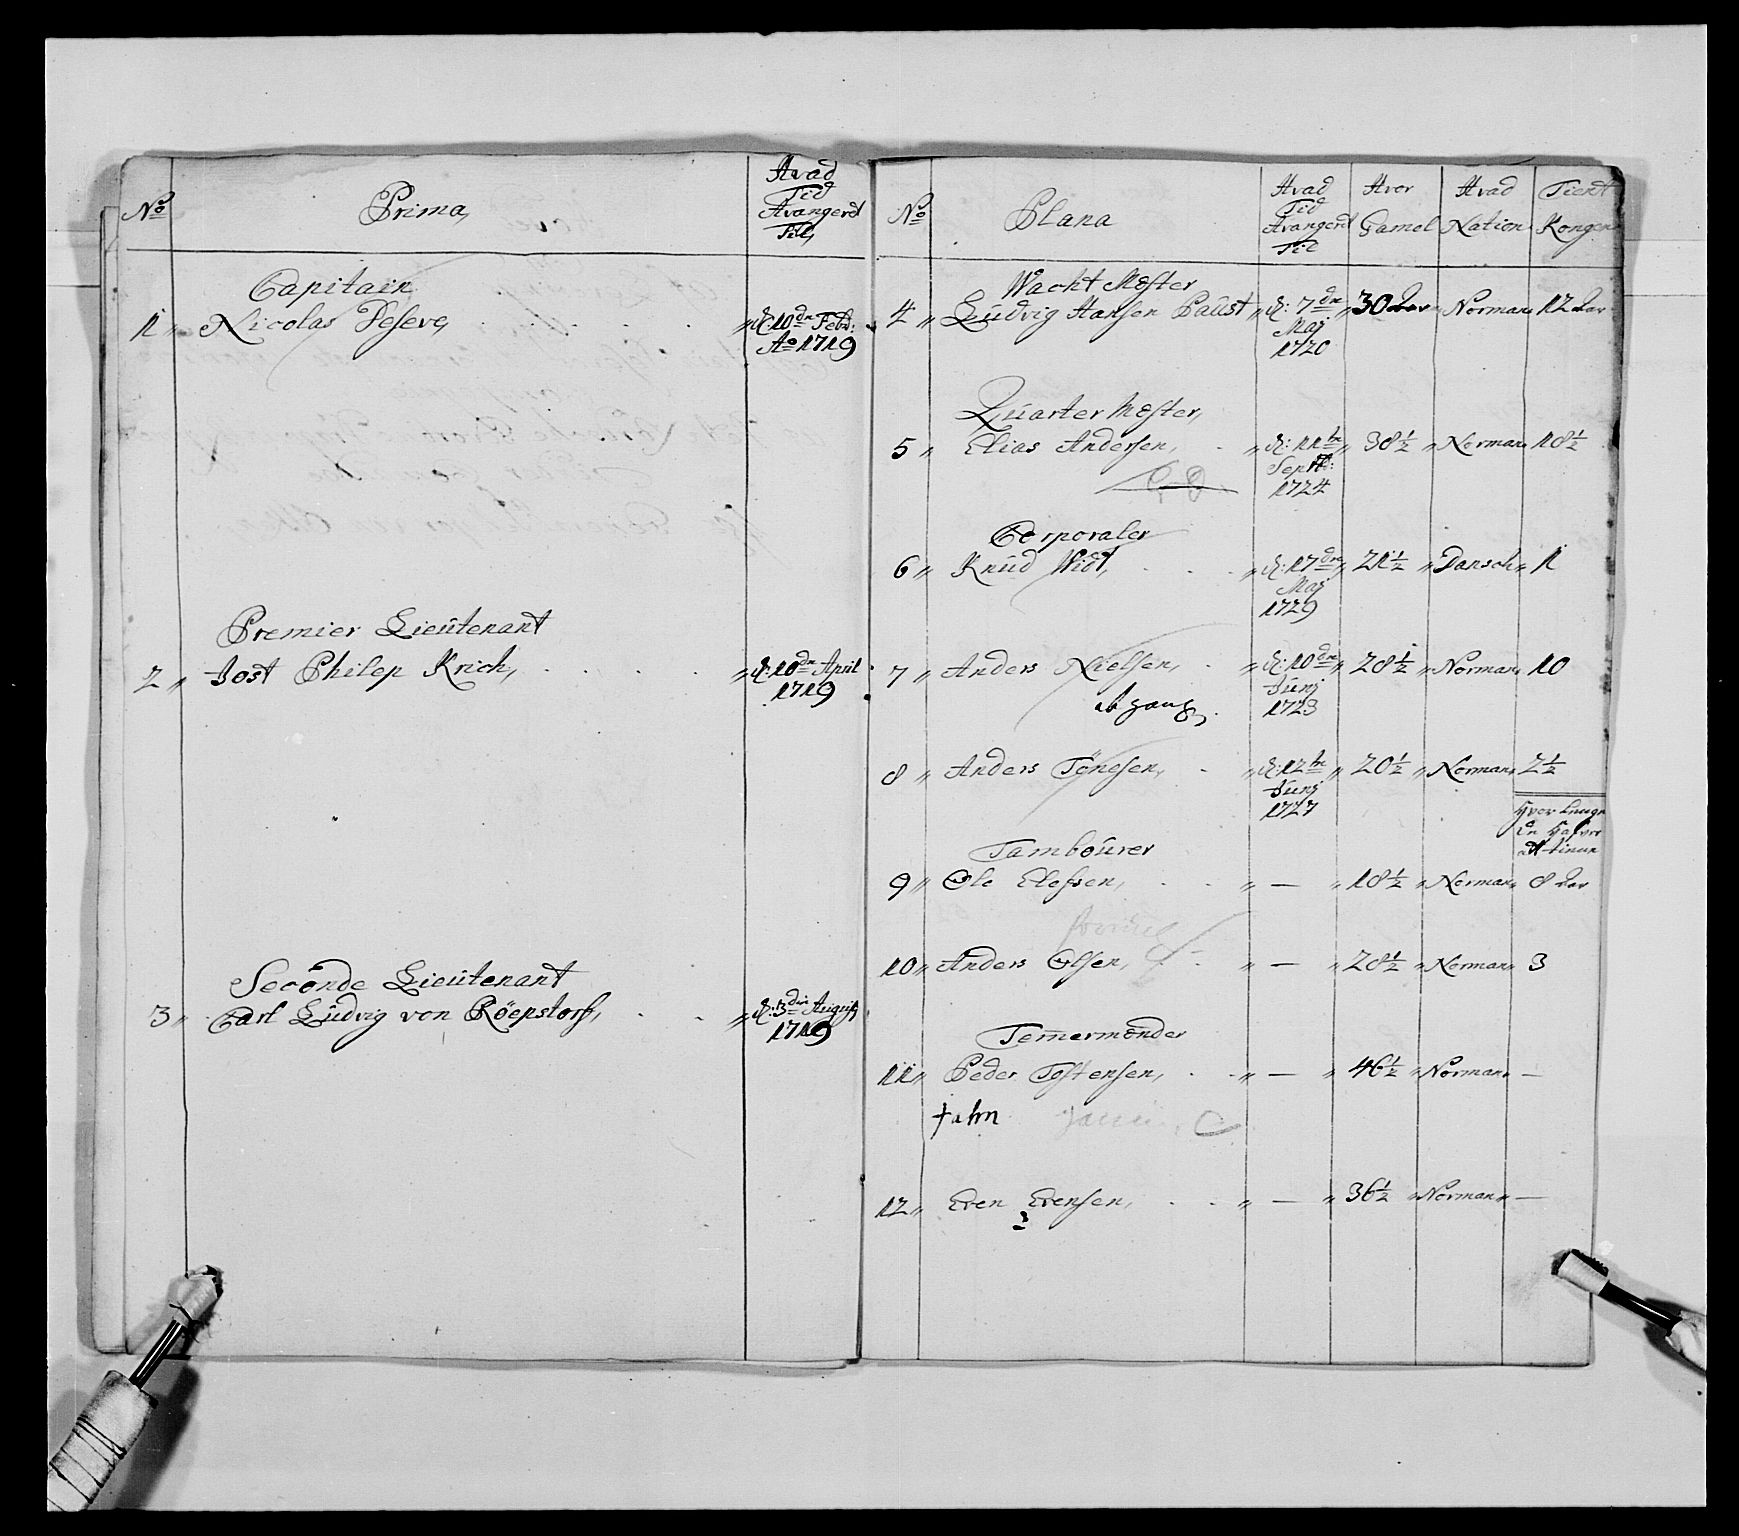 No Prima, Hvad
Tid
Avangerdt
Till,
Capitain
1 „ Nicolas Deseve, „ d: 10de Febr:
Ao 1719
Premier Lieutenant
2 „ Jost Philep Krich, „ d: 10de April
1719
Seconde Lieutenant
3 „ Carl Ludvig von Röepstorf, „ d: 3die Augusti
1719
No Plana Hvad
Tid
Avangerdt
Til Hvor
Gamel Hvad
Nation Tient
Kongen
Wacht Mester
4 „ Ludvig Hansen Paust „ d: 7de
Maj
1720 „ 30 Aar „ Norman „ 12 Aar
Quarter Mester,
5 „ Elias Andersen, „ d: 11te
Septb:
1724 „ 38½ „ Norman „ 18½
Corporaler
6 „ Knud Widt, „ d: 17de
Maj
1729 „ 21½ „ Dansch „ 1
7 „ Anders Nielsen, „ d: 10de
Junj
1723 „ 28½ „ Norman „ 10
abgang
8 „ Anders Tönesen, „ d: 12te
Junj
1727 „ 20½ „ Norman „ 2½
Tambourer
9 „ Ole Elefsen, „ — „ 18½ „ Norman „ 8 Aar
10 „ Anders Olsen, „ — „ 28½ „ Norman „ 3
Temermender
11 „ Peder Tostensen, „ — „ 46½ „ Norman „ —
12 „ Even Evensen, „ — „ 36½ „ Norman „ —